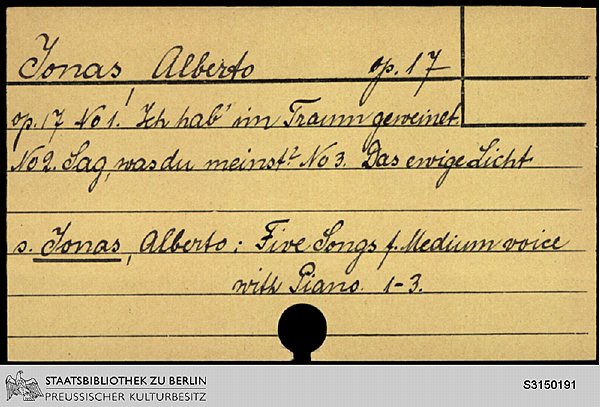 Jonas, Alberto op. 17
op. 17 No 1. Ich hab' im Traum geweinet
No 2. Sag, was du meinst? No 3. Das ewige Licht
s. Jonas, Alberto: Five Songs f. Medium voice
with Piano. 1-3.
STAATSBIBLIOTHEK ZU BERLIN
PREUSSISCHER KULTURBESITZ
S3150191